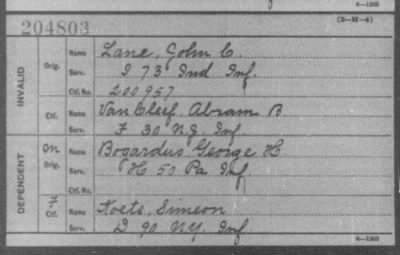 6—1303
204803
(3—H—4)
INVALID
Orig.
Name Lane, John C.
Serv. I 73 Ind Inf.
Ctf. No. 200957
Ctf.
Name Van Cleef, Abram B.
Serv. F 30 N.J. Inf
DEPENDENT
m
Orig.
Name Bogardus George H
Serv. H 50 Pa Inf
Ctf. No.
Ctf.
Name Koets, Simeon
Serv. D 90 N.Y. Inf
6—1303